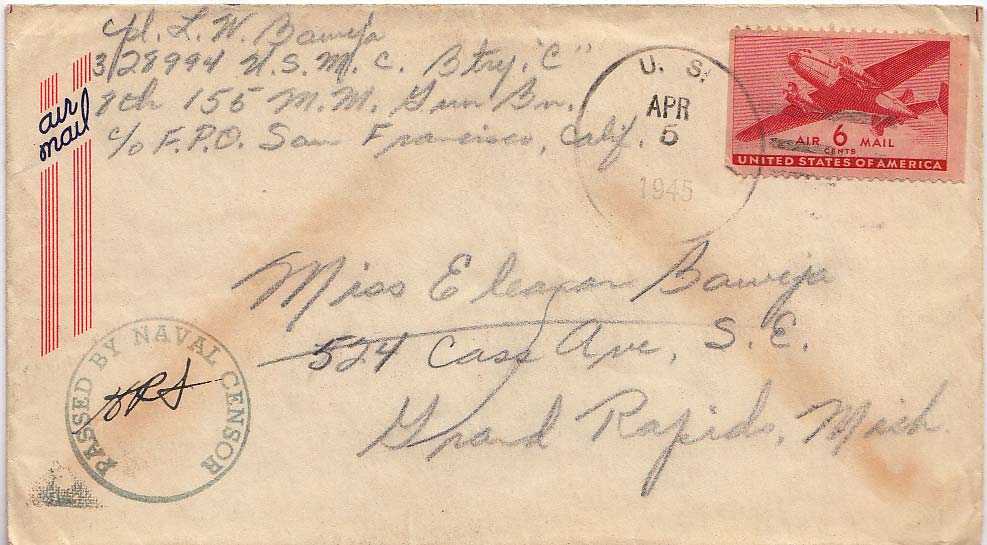 Cpl. L. W. Baweja
328994 U.S.M.C. Btry. "C"
155 M.M. Gun Bn.
c/o F.P.O. San Francisco, Calif.
air mail
U. S.
APR
5
1945
AIR 6 MAIL
CENTS
UNITED STATES OF AMERICA
Miss Eleanor Baweja
524 Cass Ave, S.E.
Grand Rapids, Mich.
PASSED BY NAVAL CENSOR